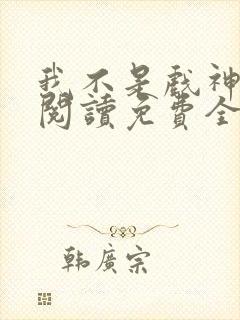 我不是戲神
閱讀免費全
韓廣宗